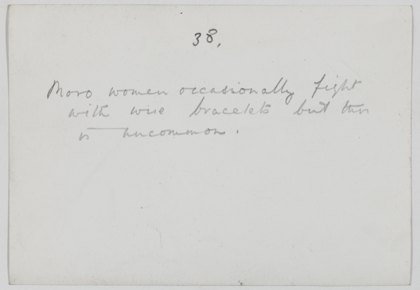 38.
Moro women occasionally fight
with wire bracelets but this
is uncommon.